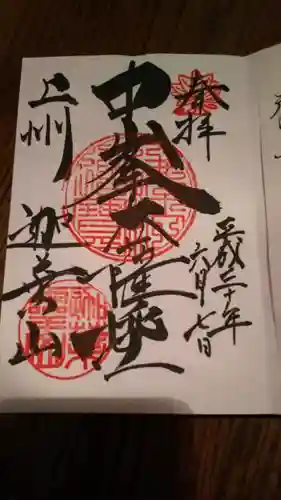 奉拝
平成三十年
六月七日
中峯大薩埵
上州
迦葉山